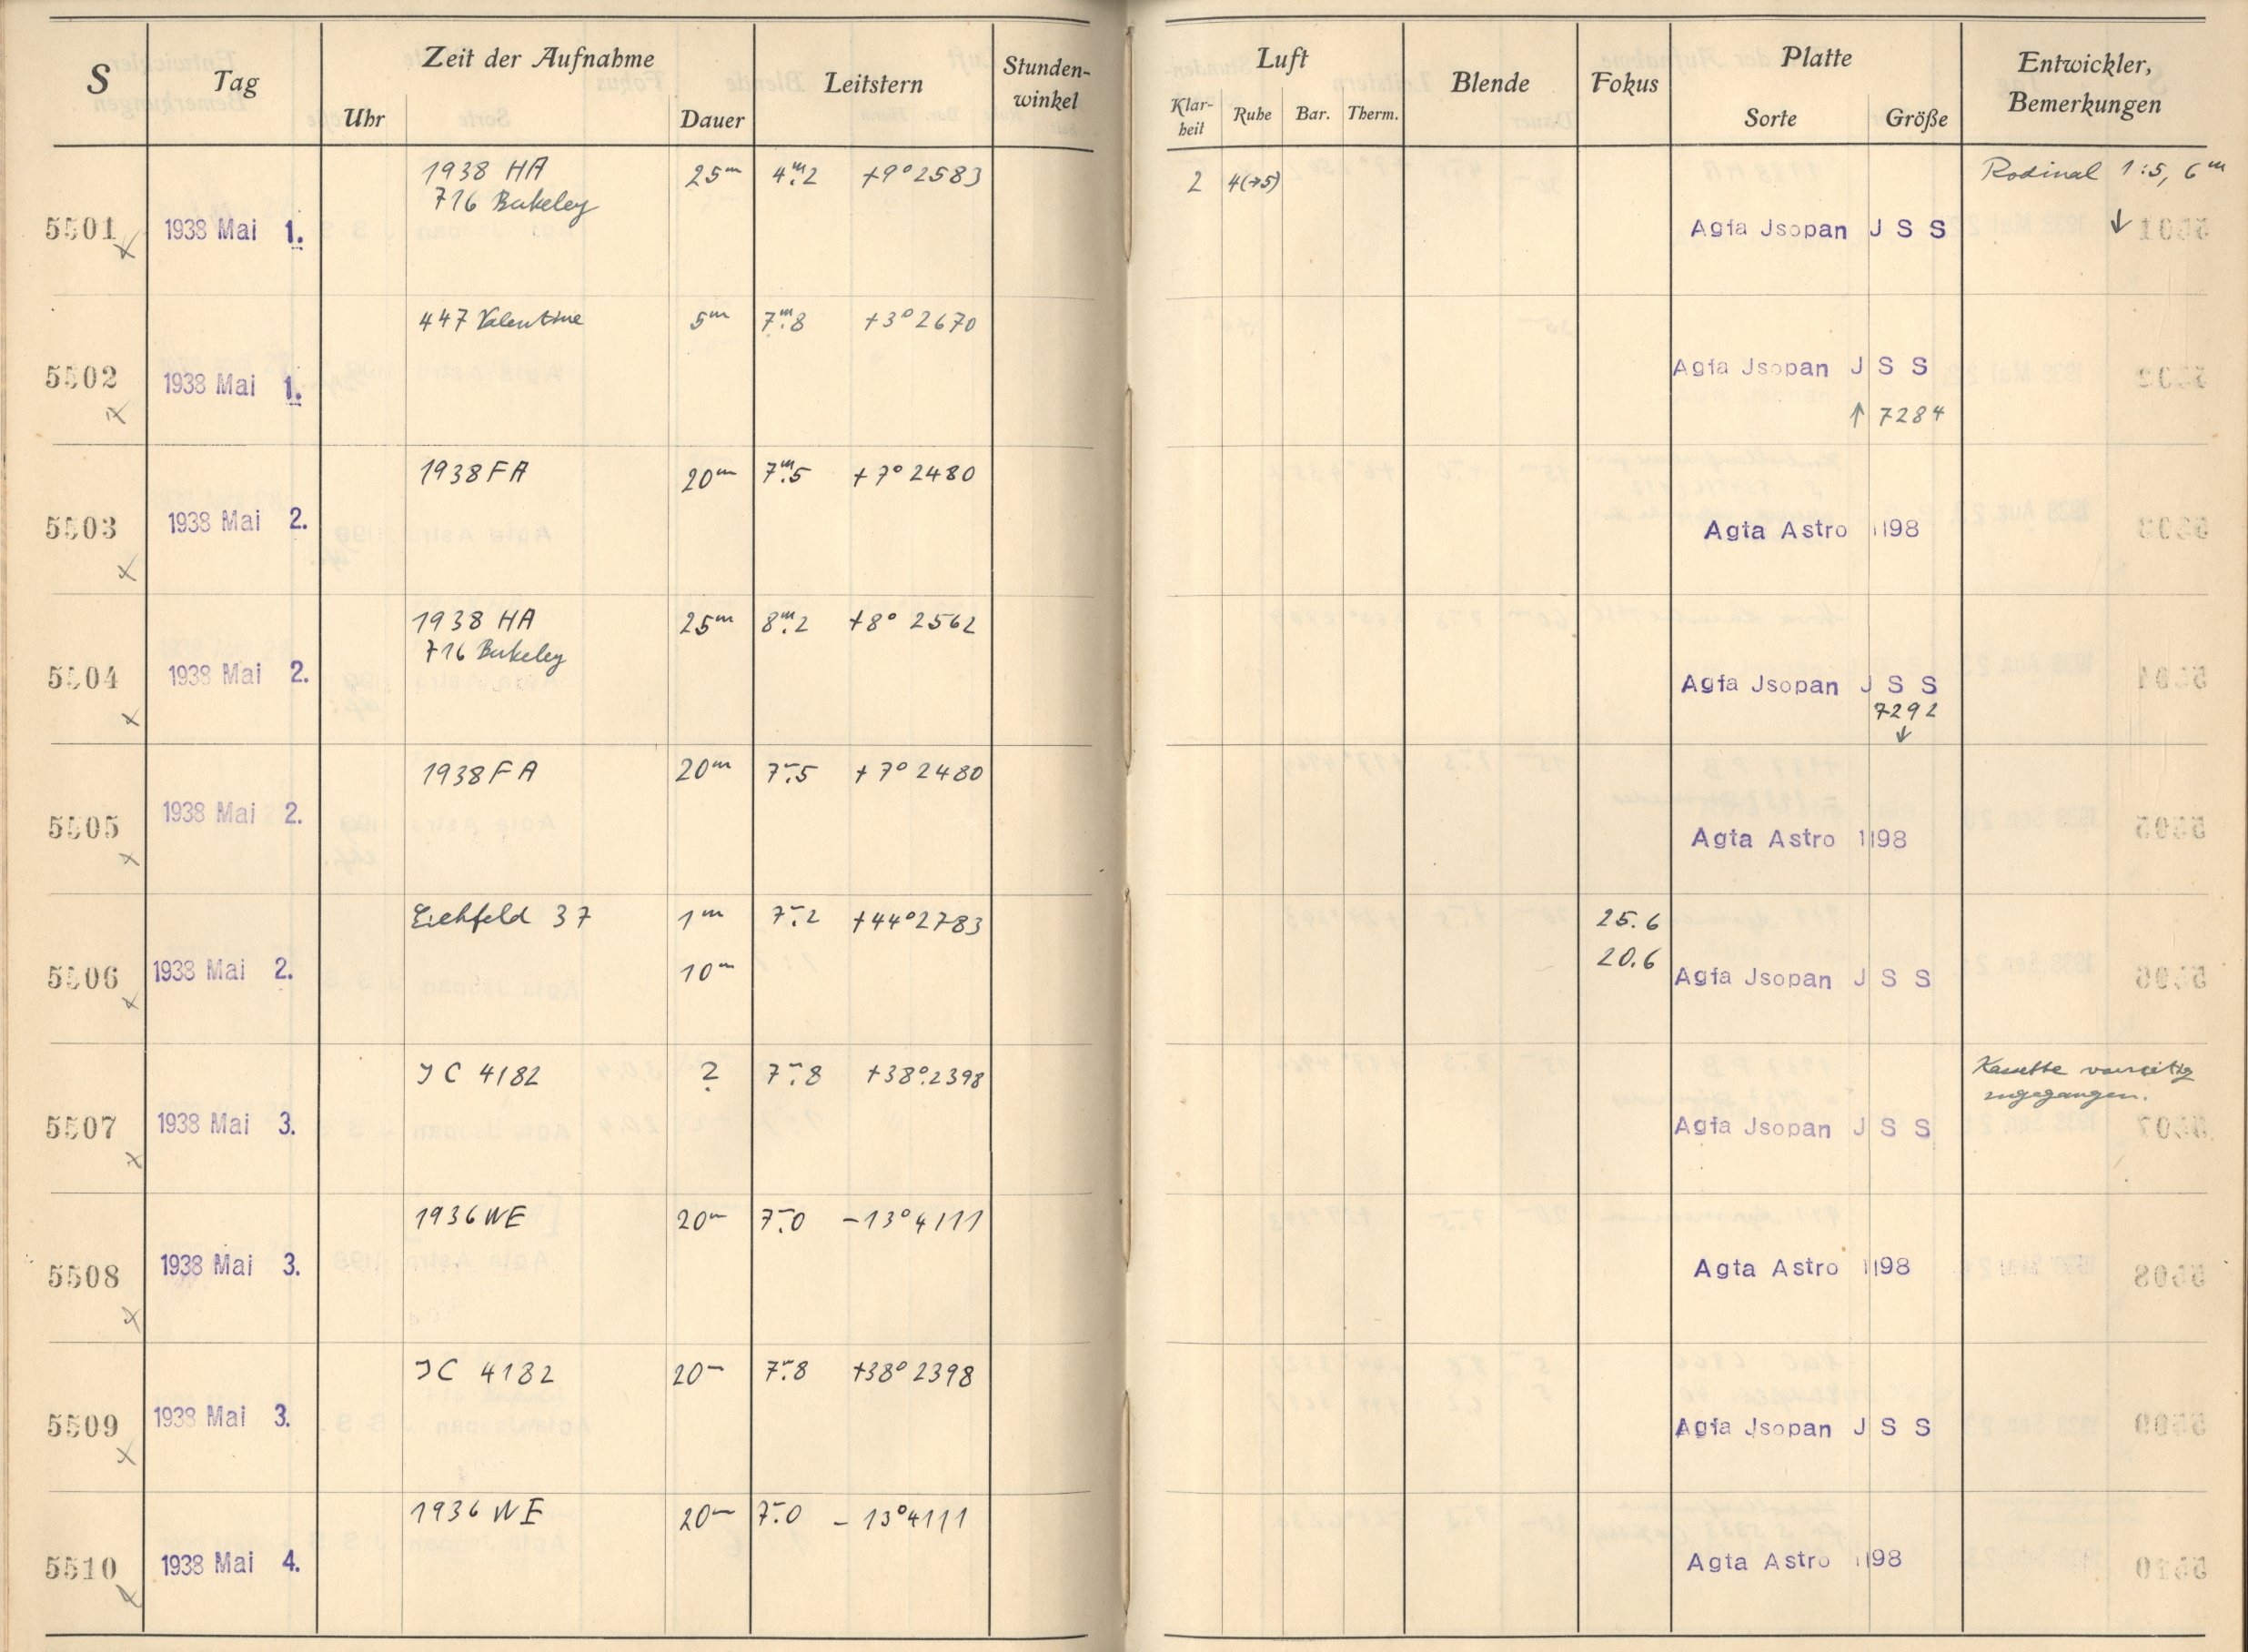 S Tag Zeit der Aufnahme Leitstern Stunden-winkel Luft Blende Fokus Platte Entwickler, Bemerkungen
Uhr Dauer Klar-heit Ruhe Bar. Therm. Sorte Größe
1938 HA 25m 4m.2 +9° 2583 2 4(→5) Rodinal 1:5, 6m
716 Berkeley
5501 1938 Mai 1. Agfa Jsopan J S S ↓
447 Valentine 5m 7m.8 +3° 2670
5502 1938 Mai 1. Agfa Jsopan J S S
↑ 7284
1938 FA 20m 7m.5 +7° 2480
5503 1938 Mai 2. Agfa Astro 1198
1938 HA 25m 8m.2 +8° 2562
716 Berkeley
5504 1938 Mai 2. Agfa Jsopan J S S
7292
↓
1938 FA 20m 7m.5 +7° 2480
5505 1938 Mai 2. Agfa Astro 1198
Eichfeld 37 1m 7m.2 +44° 2783 25.6
10m 20.6
5506 1938 Mai 2. Agfa Jsopan J S S
JC 4182 ? 7m.8 +38° 2398 Kassette vorzeitig
zugegangen.
5507 1938 Mai 3. Agfa Jsopan J S S
1936 WE 20m 7m.0 -13° 4111
5508 1938 Mai 3. Agfa Astro 1198
JC 4182 20m 7m.8 +38° 2398
5509 1938 Mai 3. Agfa Jsopan J S S
1936 WE 20m 7m.0 -13° 4111
5510 1938 Mai 4. Agfa Astro 1198